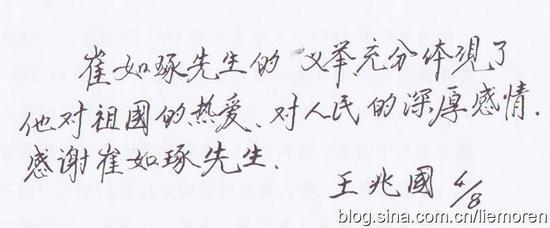 崔如琢先生的 义举充分体现了
他对祖國的热爱、对人民的深厚感情.
感谢崔如琢先生.
王兆國 4/8
blog.sina.com.cn/liemoren